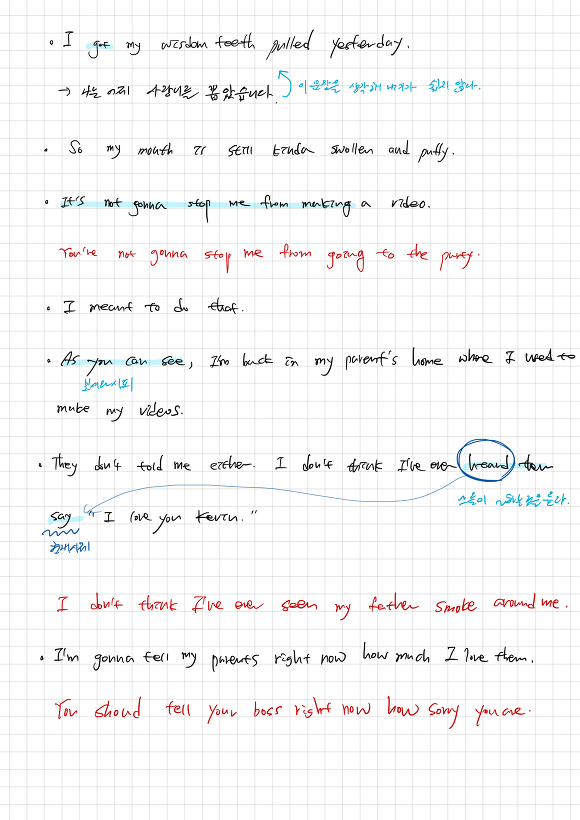 • I got my wisdom teeth pulled yesterday.
→ 나는 어제 사랑니를 뽑았습니다. 이 문장을 생각해 내기가 쉽지 않다.
• So my mouth is still kinda swollen and puffy.
• It's not gonna stop me from making a video.
You're not gonna stop me from going to the party.
• I meant to do that.
• As you can see, I'm back in my parent's home where I used to
보시다시피
make my videos.
• They don't told me either. I don't think I've ever heard them
say "I love you Kevin."
현재시제
I don't think I've ever seen my father smoke around me.
• I'm gonna tell my parents right now how much I love them.
You should tell your boss right now how sorry you are.